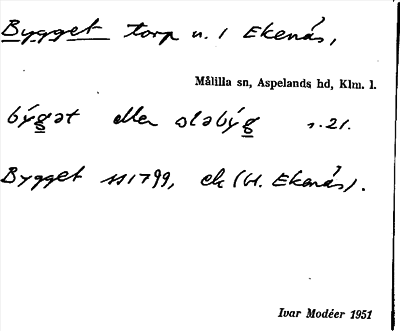 Bygget torp u. 1 Ekenäs,
Målilla sn, Aspelands hd, Klm. l.
býgət eller sləbýg s. 21.
Bygget 1799, ek (bl. Ekenäs).
Ivar Modéer 1951